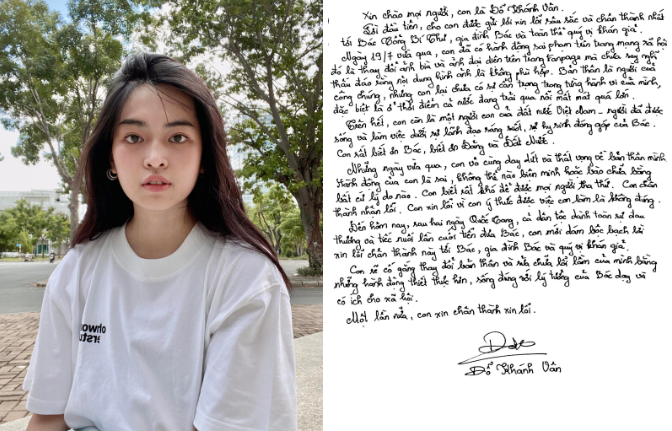 ohwo
erstu
Xin chào mọi người, con là Đỗ Khánh Vân.
Lời đầu tiên, cho con được gửi lời xin lỗi sâu sắc và chân thành nhất
tới Bác Tổng Bí Thư, gia đình Bác và toàn thể quý vị khán giả.
Ngày 19/7 vừa qua, con đã có hành động sai phạm trên trang mạng xã hội
đó là thay đổi ảnh bìa và ảnh đại diện trên trang Fanpage mà chưa suy nghĩ
thấu đáo rằng nội dung hình ảnh là không phù hợp. Bản thân là người của
công chúng, nhưng con lại chưa có sự cẩn trọng trong từng hành vi của mình,
đặc biệt là ở thời điểm cả nước đang trải qua nỗi mất mát quá lớn.
Trên hết, con còn là một người con của đất nước Việt Nam - người đã được
sống và làm việc dưới sự lãnh đạo sáng suốt, sự hy sinh đóng góp của Bác.
Con rất biết ơn Bác, biết ơn Đảng và Đất Nước.
Những ngày vừa qua, con vô cùng day dứt và thất vọng về bản thân mình
hành động của con là sai, không thể nào biện minh hoặc bào chữa bằng
bất cứ lý do nào. Con biết rất khó để được mọi người tha thứ. Con chân
thành nhận lỗi. Con xin lỗi vì con ý thức được việc con làm là không đúng.
Đến hôm nay, sau hai ngày Quốc Tang, cả dân tộc dành toàn sự đau
thương và tiếc nuối lần cuối tiễn đưa Bác, con mới dám bộc bạch lời
xin lỗi chân thành này tới Bác, gia đình Bác và quý vị khán giả.
Con sẽ cố gắng thay đổi bản thân và sửa chữa lỗi lầm của mình bằng
những hành động thiết thực hơn, sống đúng với lý tưởng của Bác dạy và
có ích cho xã hội.
Một lần nữa, con xin chân thành xin lỗi.
Đỗ Khánh Vân